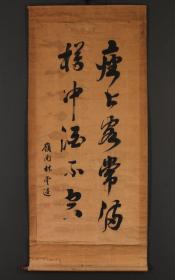 座上客常滿
樽中酒不空
嶺南林雲逵